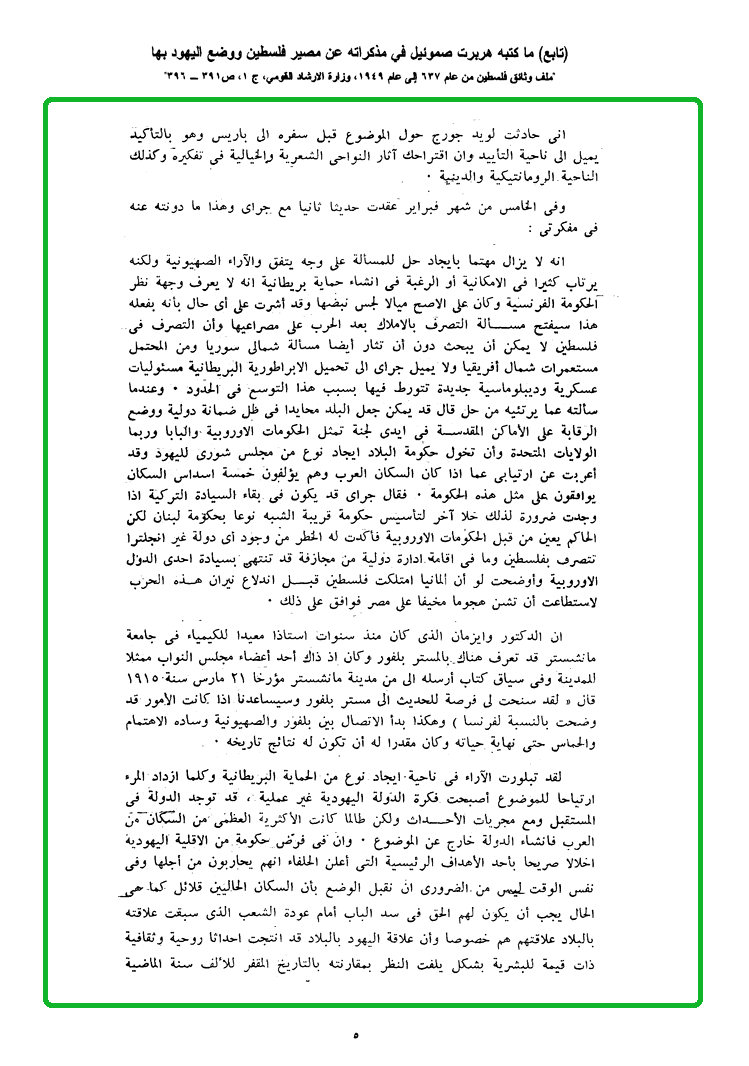 (تابع) ما كتبه هربرت صموئيل في مذكراته عن مصير فلسطين ووضع اليهود بها
"ملف وثائق فلسطين من عام ٦٣٧ إلى عام ١٩٤٩، وزارة الارشاد القومي، ج ١، ص ٣٩١ – ٣٩٦"
انى حادثت لويد جورج حول الموضوع قبل سفره الى باريس وهو بالتأكيد
يميل الى ناحية التأييد وان اقتراحك آثار النواحى الشعرية والخيالية فى تفكيره وكذلك
الناحية الرومانتيكية والدينية ٠
وفى الخامس من شهر فبراير عقدت حديثا ثانيا مع جراى وهذا ما دونته عنه
فى مفكرتى :
انه لا يزال مهتما بايجاد حل للمسألة على وجه يتفق والآراء الصهيونية ولكنه
يرتاب كثيرا فى الامكانية أو الرغبة فى انشاء حماية بريطانية انه لا يعرف وجهة نظر
الحكومة الفرنسية وكان على الاصح ميالا لجس نبضها وقد أشرت على أى حال بأنه بفعله
هذا سيفتح مسألة التصرف بالاملاك بعد الحرب على مصراعيها وأن التصرف فى
فلسطين لا يمكن أن يبحث دون أن تثار أيضا مسألة شمالى سوريا ومن المحتمل
مستعمرات شمال أفريقيا ولا يميل جراى الى تحميل الابراطورية البريطانية مسئوليات
عسكرية وديبلوماسية جديدة تتورط فيها بسبب هذا التوسع فى الحدود ٠ وعندما
سألته عما يرتئيه من حل قال قد يمكن جعل البلد محايدا فى ظل ضمانة دولية ووضع
الرقابة على الأماكن المقدسة فى ايدى لجنة تمثل الحكومات الاوروبية والبابا وربما
الولايات المتحدة وأن تخول حكومة البلاد ايجاد نوع من مجلس شورى لليهود وقد
أعربت عن ارتيابى عما اذا كان السكان العرب وهم يؤلفون خمسة اسداس السكان
يوافقون على مثل هذه الحكومة ٠ فقال جراى قد يكون فى بقاء السيادة التركية اذا
وجدت ضرورة لذلك خلا آخر لتأسيس حكومة قريبة الشبه نوعا بحكومة لبنان لكن
الحاكم يعين من قبل الحكومات الاوروبية فأكدت له الخطر من وجود أى دولة غير انجلترا
تتصرف بفلسطين وما فى اقامة ادارة دولية من مجازفة قد تنتهى بسيادة احدى الدول
الاوروبية وأوضحت لو أن ألمانيا امتلكت فلسطين قبل اندلاع نيران هذه الحرب
لاستطاعت أن تشن هجوما مخيفا على مصر فوافق على ذلك ٠
ان الدكتور وايزمان الذى كان منذ سنوات استاذا معيدا للكيمياء فى جامعة
مانشستر قد تعرف هناك بالمستر بلفور وكان إذ ذاك أحد أعضاء مجلس النواب ممثلا
للمدينة وفى سياق كتاب أرسله الى من مدينة مانشستر مؤرخا ٢١ مارس سنة ١٩١٥
قال « لقد سنحت لى فرصة للحديث الى مستر بلفور وسيساعدنا اذا كانت الأمور قد
وضحت بالنسبة لفرنسا ) وهكذا بدأ الاتصال بين بلفور والصهيونية وساده الاهتمام
والحماس حتى نهاية حياته وكان مقدرا له أن تكون له نتائج تاريخه ٠
لقد تبلورت الآراء فى ناحية ايجاد نوع من الحماية البريطانية وكلما ازداد المرء
ارتياحا للموضوع أصبحت فكرة الدولة اليهودية غير عملية ، قد توجد الدولة فى
المستقبل ومع مجريات الأحداث ولكن طالما كانت الأكثرية العظمى من السكان من
العرب فانشاء الدولة خارج عن الموضوع ٠ وان فى فرض حكومة من الاقلية اليهودية
اخلالا صريحا بأحد الأهداف الرئيسية التى أعلن الحلفاء انهم يحاربون من أجلها وفى
نفس الوقت ليس من الضرورى ان نقبل الوضع بأن السكان الحاليين قلائل كما هى
الحال يجب أن يكون لهم الحق فى سد الباب أمام عودة الشعب الذى سبقت علاقته
بالبلاد علاقتهم هم خصوصا وأن علاقة اليهود بالبلاد قد انتجت احداثا روحية وثقافية
ذات قيمة للبشرية بشكل يلفت النظر بمقارنته بالتاريخ المقفر للألف سنة الماضية
٥